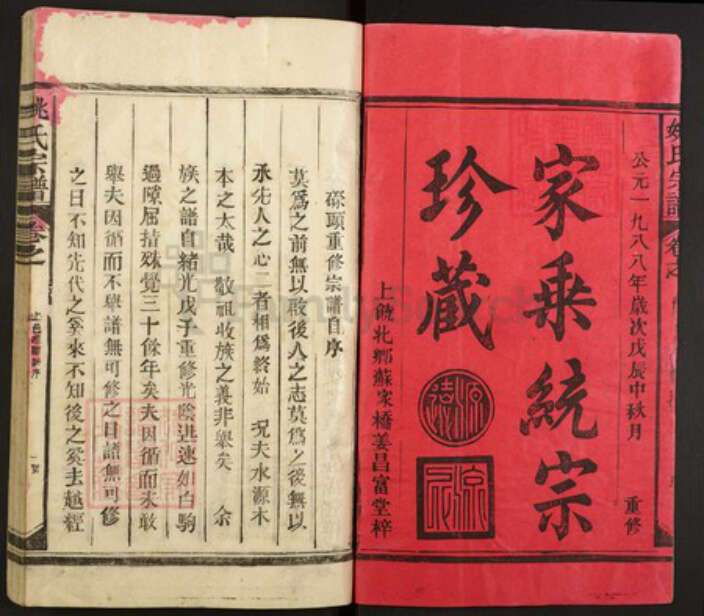 公元一九八八年歲次戊辰中秋月 重修
家乘統宗
珍藏
上饒北鄉蘇家橋姜昌富堂梓
重修宗譜自序
莫爲之前無以啟後人之志莫爲之後無以
承先人之心二者相爲終始 況夫水源木
本之大哉 敬祖收族之義非舉矣 余
族之譜自緒光戊子重修光陰迅速如白駒
過隙屈指殊覺三十餘年矣夫因循而未敢
舉夫因循而不舉譜無可修之日譜無可修
之日不知先代之奚來不知後之奚去越經
姚氏宗譜 卷之